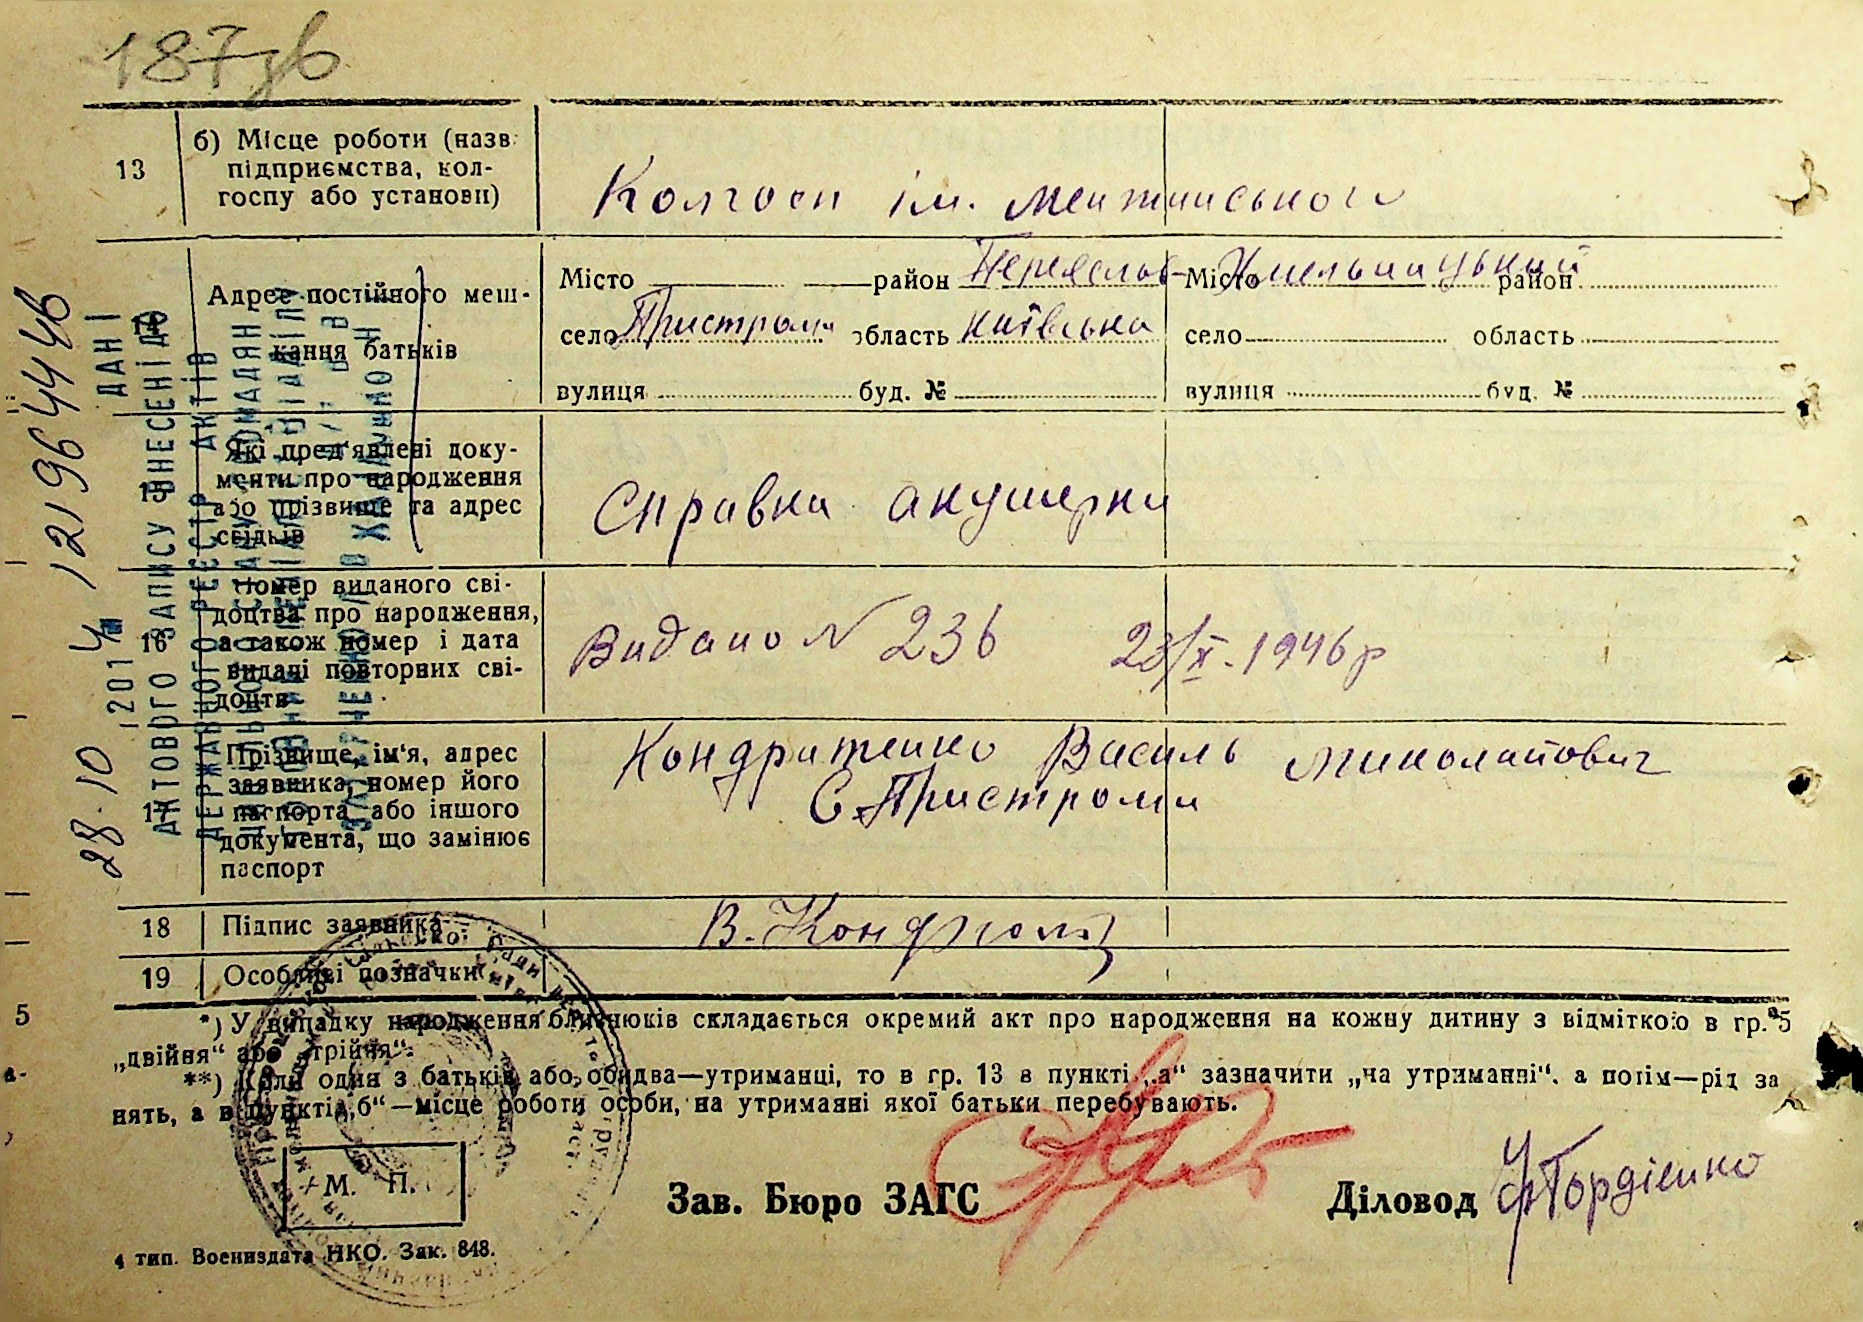 187зв
13
б) Місце роботи (назв
підприємства, кол-
госпу або установи)
Колгосп ім. Менжинського
14
Адрес постійного меш-
кання батьків
Місто район Переяслав- Місто Хмельницький район
село Пристроми область Київська село область
вулиця буд. № вулиця буд. №
15
Які пред'явлені доку-
менти про народження
або прізвище та адрес
свідків
Справка акушерки
16
Номер виданого сві-
доцтва про народження,
а також номер і дата
видачі повторних сві-
доцтв
Видано N 236 23/X. 1946р
17
Прізвище, ім'я, адрес
заявника, номер його
паспорта або іншого
документа, що замінює
паспорт
Кондратенко Василь Миколайович
С. Пристроми
18 Підпис заявника
В. Кондрат
19 Особливі позначки
*) У випадку народження близнюків складається окремий акт про народження на кожну дитину з відміткою в гр. 5
„двійня“ або „трійня“.
**) Коли один з батьків, або обидва—утриманці, то в гр. 13 в пункті „а“ зазначити „на утриманні“, а потім—рід за
нять, а в пункті „б“—місце роботи особи, на утриманні якої батьки перебувають.
М. П.
Зав. Бюро ЗАГС
Діловод Гордієнко
4 тип. Воениздата НКО. Зак. 848.
28.10 2014 12196444в
ДАНІ
АКТОВОГО ЗАПИСУ ВНЕСЕНІ ДО
ДЕРЖАВНОГО РЕЄСТР АКТІВ
5